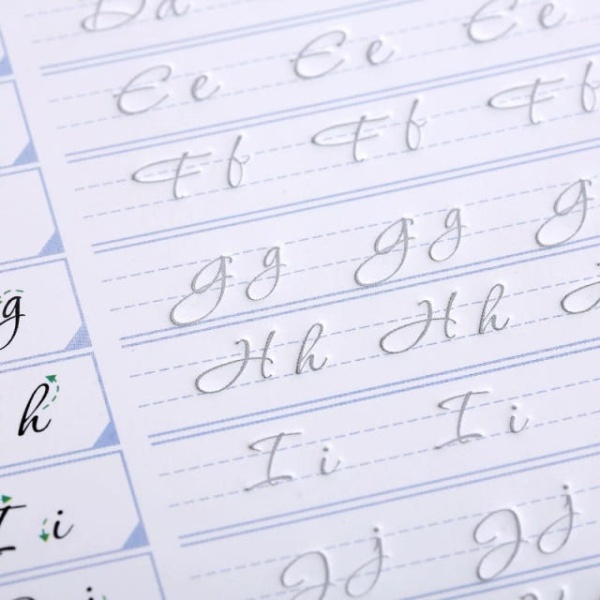 Da Ee
Ee Ee
Ff Ff Ff
g Gg Gg G
h Hh Hh
I i Ii Ii
Jj Jj